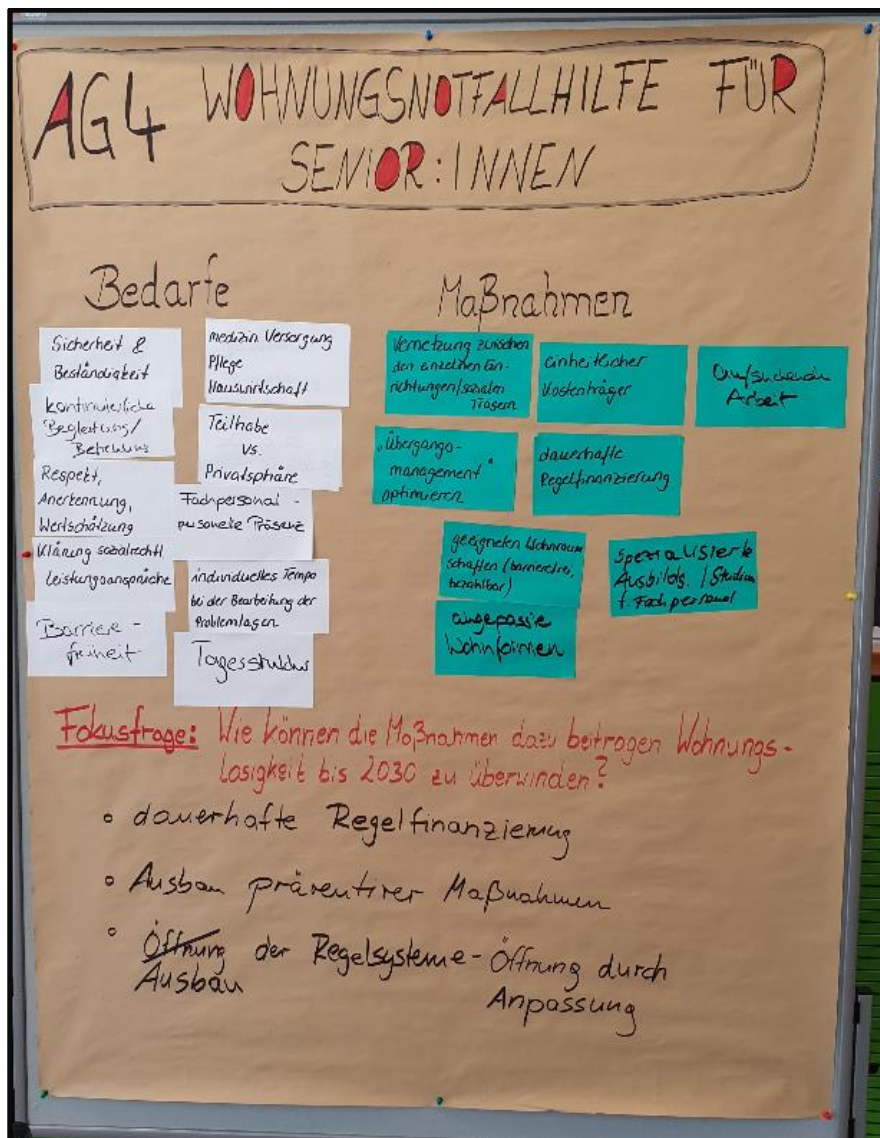 AG4 WOHNUNGSNOTFALLHILFE FÜR
SENIOR:INNEN
Bedarfe
Sicherheit &
Beständigkeit
kontinuierliche
Begleitung/
Betreuung
Respekt,
Anerkennung,
Wertschätzung
Klärung sozialrechtl
Leistungsansprüche
Barriere-
freiheit
medizin. Versorgung
Pflege
Hauswirtschaft
Teilhabe
vs.
Privatsphäre
Fachpersonal -
personelle Präsenz
individuelles Tempo
bei der Bearbeitung der
Problemlagen
Tagesstruktur
Maßnahmen
Vernetzung zwischen
den einzelnen Ein-
richtungen/sozialen
Trägern
einheitlicher
Kostenträger
aufsuchende
Arbeit
"Übergangs-
management"
optimieren
dauerhafte
Regelfinanzierung
geeigneten Wohnraum
schaffen (barrierefrei,
bezahlbar)
spezialisierte
Ausbildg. / Studium
f. Fachpersonal
angepasste
Wohnformen
Fokusfrage: Wie können die Maßnahmen dazu beitragen Wohnungs-
losigkeit bis 2030 zu überwinden?
dauerhafte Regelfinanzierung
Ausbau präventiver Maßnahmen
Öffnung der Regelsysteme - Öffnung durch
Ausbau Anpassung